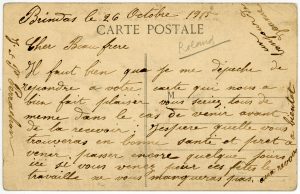 Brindas le 26 Octobre 1915
CARTE POSTALE
Cher Beau frere
Roland
Il faut bien que je me dépeche de
repondre a votre carte qui nous a
bien fait plaisir vous seriez tous de
meme dans le cas de venir avant
de la recevoir j'espere quelle vous
trouveras en bonne santé et pret a
venir passer encore quelque jours
ici si vous venez pour ces fetes le
travaille ne vous manqueras pas
a bientot